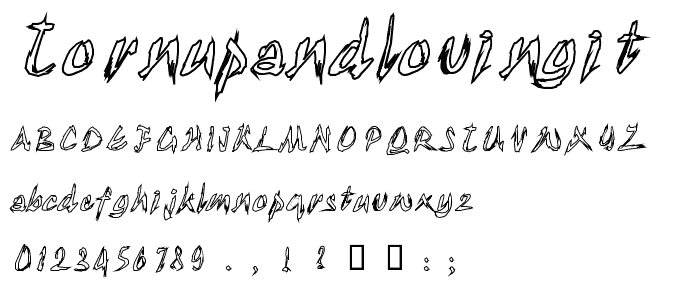 Tornupandlovingit
ABCDEFGHIJKLMNOPQRSTUVWXYZ
abcdefghijklmnopqrstuvwxyz
0123456789.,!?□□:;